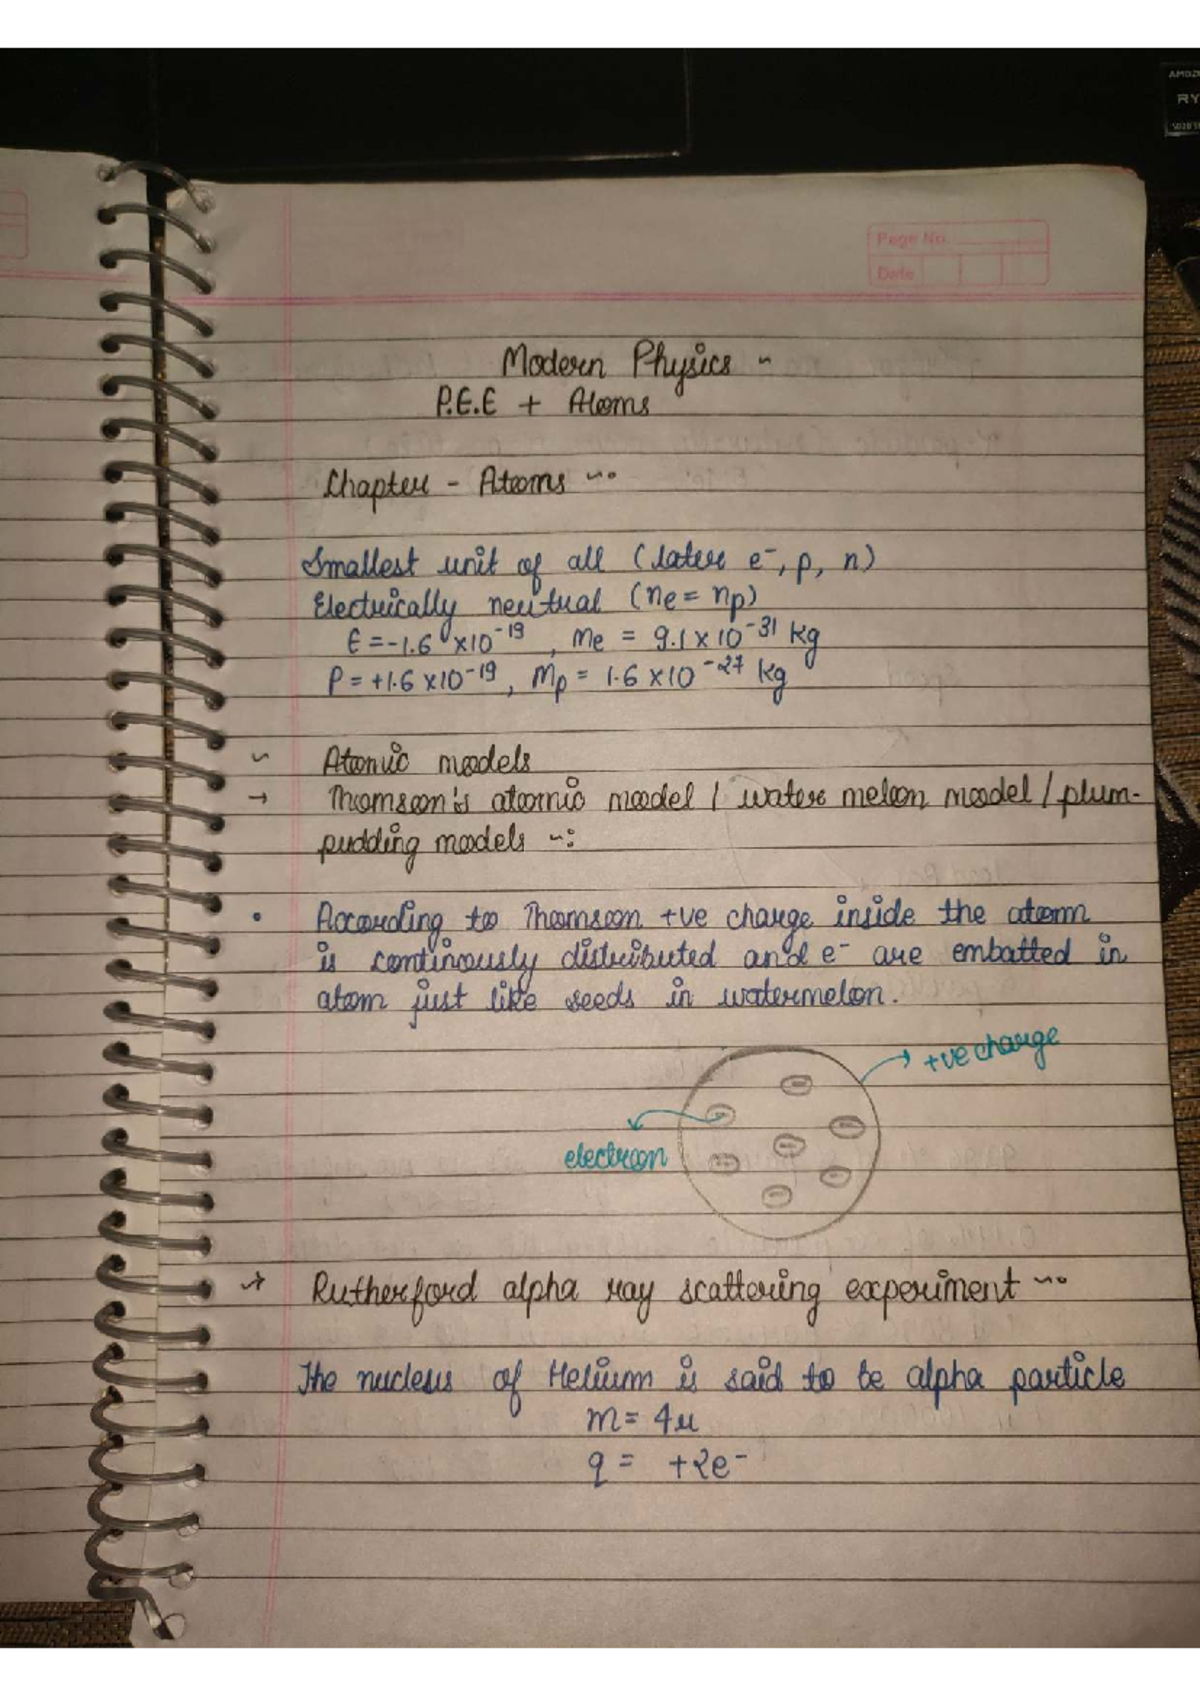 AMD
RY
Page No.
Date
Modern Physics ~
P.E.E + Atoms
Chapter - Atoms ~•
Smallest unit of all (later e⁻, p, n)
Electrically neutual (ne = np)
E = -1.6 × 10⁻¹⁹, me = 9.1 × 10⁻³¹ kg
P = +1.6 × 10⁻¹⁹, Mp = 1.6 × 10⁻²⁷ kg
~ Atomic models
→ Thomson's atomic model / water melon model / plum-
pudding models ~:
• According to Thomson +ve charge inside the atom
is continously distributed and e⁻ are embatted in
atom just like seeds in watermelon.
+ve charge
electron
→ Rutherford alpha ray scattering experiment ~•
The nucleus of Helium is said to be alpha particle
m = 4u
q = +2e⁻